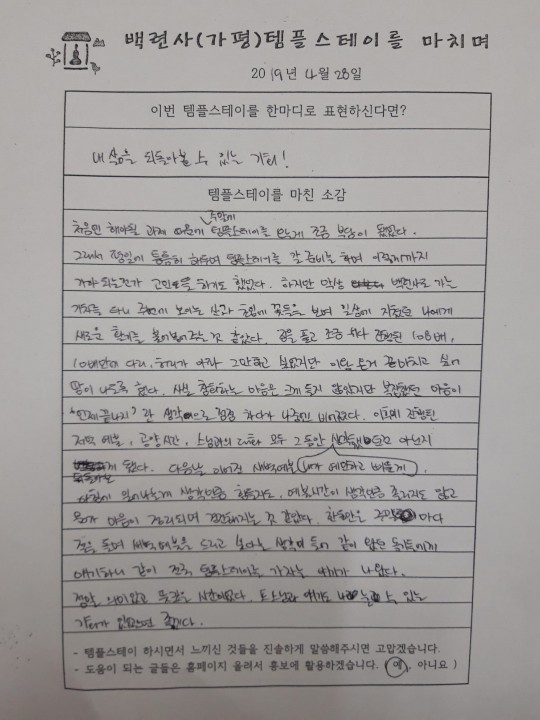 백련사(가평)템플스테이를 마치며
2019년 4월 28일
이번 템플스테이를 한마디로 표현하신다면?
내 삶을 되돌아볼 수 있는 기회!
템플스테이를 마친 소감
주말에
처음엔 해야될 과제 때문에 템플스테이를 오게 조금 부담이 됐었다.
그래서 평일에 틈틈히 하루며 템플스테이를 갈 준비를 하며 어떻게까지
가야 되는건가 고민을 하기도 했었다. 하지만 막상 백련사로 가는
기차를 타니 주변에 보이는 산과 흙에 꽃들을 보며 일상에 지쳤던 나에게
새로운 환기를 불어넣어주는 것 같았다. 짐을 풀고 조금 있다 진행된 108배,
10배만에 다리, 허리가 아파 그만하고 싶었지만 이왕 온거 끝마치고 싶어
땀이 나도록 했다. 사실 참회하는 마음은 크게 들지 않았지만 복잡했던 마음이
"언제끝나지" 란 생각으로 점점 하다가 나중엔 비어졌다. 이후에 진행된
저녁 예불, 공양시간, 스님과의 대화 모두 그동안
게 됐다. 다음날 이어진 새벽예불
사실 일어나는게 생각만큼 힘들지도, 예불시간이 생각만큼 졸리지도 않고
뭔가 마음이 정리되며 경건해지는 것 같았다. 한동안은 주말 마다
절을 돌며 새벽예불을 드리고 싶다는 생각이 들어 같이 왔던 동기들에게
얘기하니 같이 전국 템플스테이를 가자는 얘기가 나왔다.
정말 의미있고 뜻깊은 시간이었다. 또 스님과 얘기도 나눌 수 있는
기회가 있었으면 좋겠다.
- 템플스테이 하시면서 느끼신 것들을 진솔하게 말씀해주시면 고맙겠습니다.
- 도움이 되는 글들은 홈페이지 올려서 홍보에 활용하겠습니다. ( 예, 아니요 )